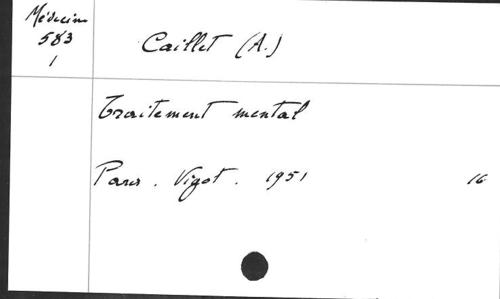 Médecine
583
1
Caillet (A.)
Traitement mental
Paris. Vigot. 1951 16